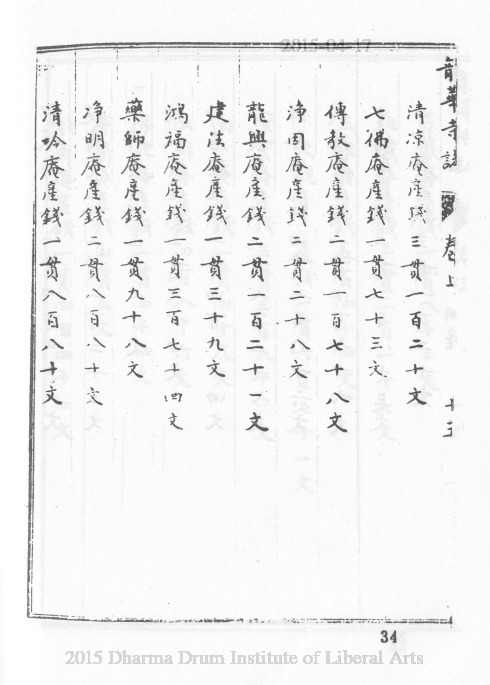 2015-04-17
寺誌 卷上 十三
清凉庵產錢三貫一百二十文
七佛庵產錢一貫七十三文
傳教庵產錢二貫一百七十八文
淨因庵產錢二貫二十八文
龍興庵產錢二貫一百二十一文
建法庵產錢一貫三十九文
鴻福庵產錢一貫三百七十四文
藥師庵產錢一貫九十八文
淨明庵產錢二貫八百八十文
清吟庵產錢一貫八百八十文
34
2015 Dharma Drum Institute of Liberal Arts